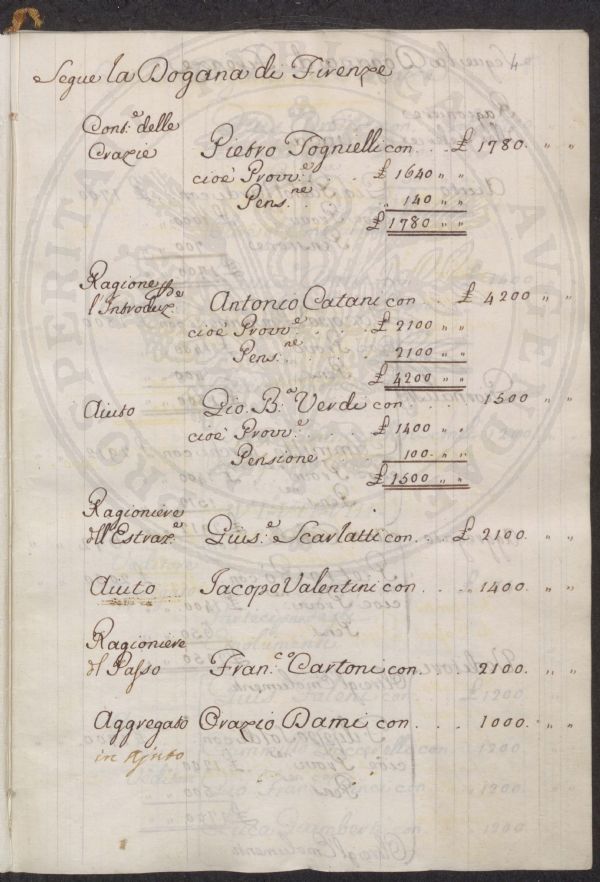 Segue la Dogana di Firenze
Cont.e delle
Crazie Pietro Tognielli con . . . £ 1780. " "
cioè Provv.e . . . £ 1640 " "
Pens.ne . . . " 140 " "
£ 1780 " "
Ragione
l'Introduz.e Antonio Catani con . . . £ 4200 " "
cioè Provv.e . . . £ 2100 " "
Pens.ne . . . 2100 " "
£ 4200 " "
Aiuto Gio. B.a Verdi con . . . 1500 " "
cioè Provv.e . . . £ 1400 " "
Pensione 100. " "
£ 1500 " "
Ragioniere
dll'Estraz.e Gius.e Scarlatti con . . . £ 2100. " "
Aiuto Jacopo Valentini con . . . 1400. " "
Ragioniere
dl Passo Fran.co Cartoni con . . . 2100. " "
Aggregato Orazio Dami con . . . 1000. " "
in Ajuto
PROSPERITATI PUBLICAE AUGENDAE